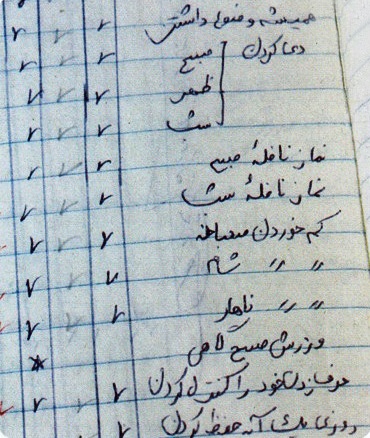 همیشه وضو داشتن
دعا کردن
صبح
ظهر
شب
نماز نافلهٔ صبح
نماز نافلهٔ شب
کم خوردن صبحانه
〃 〃 شام
〃 〃 ناهار
ورزش صبح گاهی
حرف زدن خود را کنترل کردن
روزی یک آیه حفظ کردن